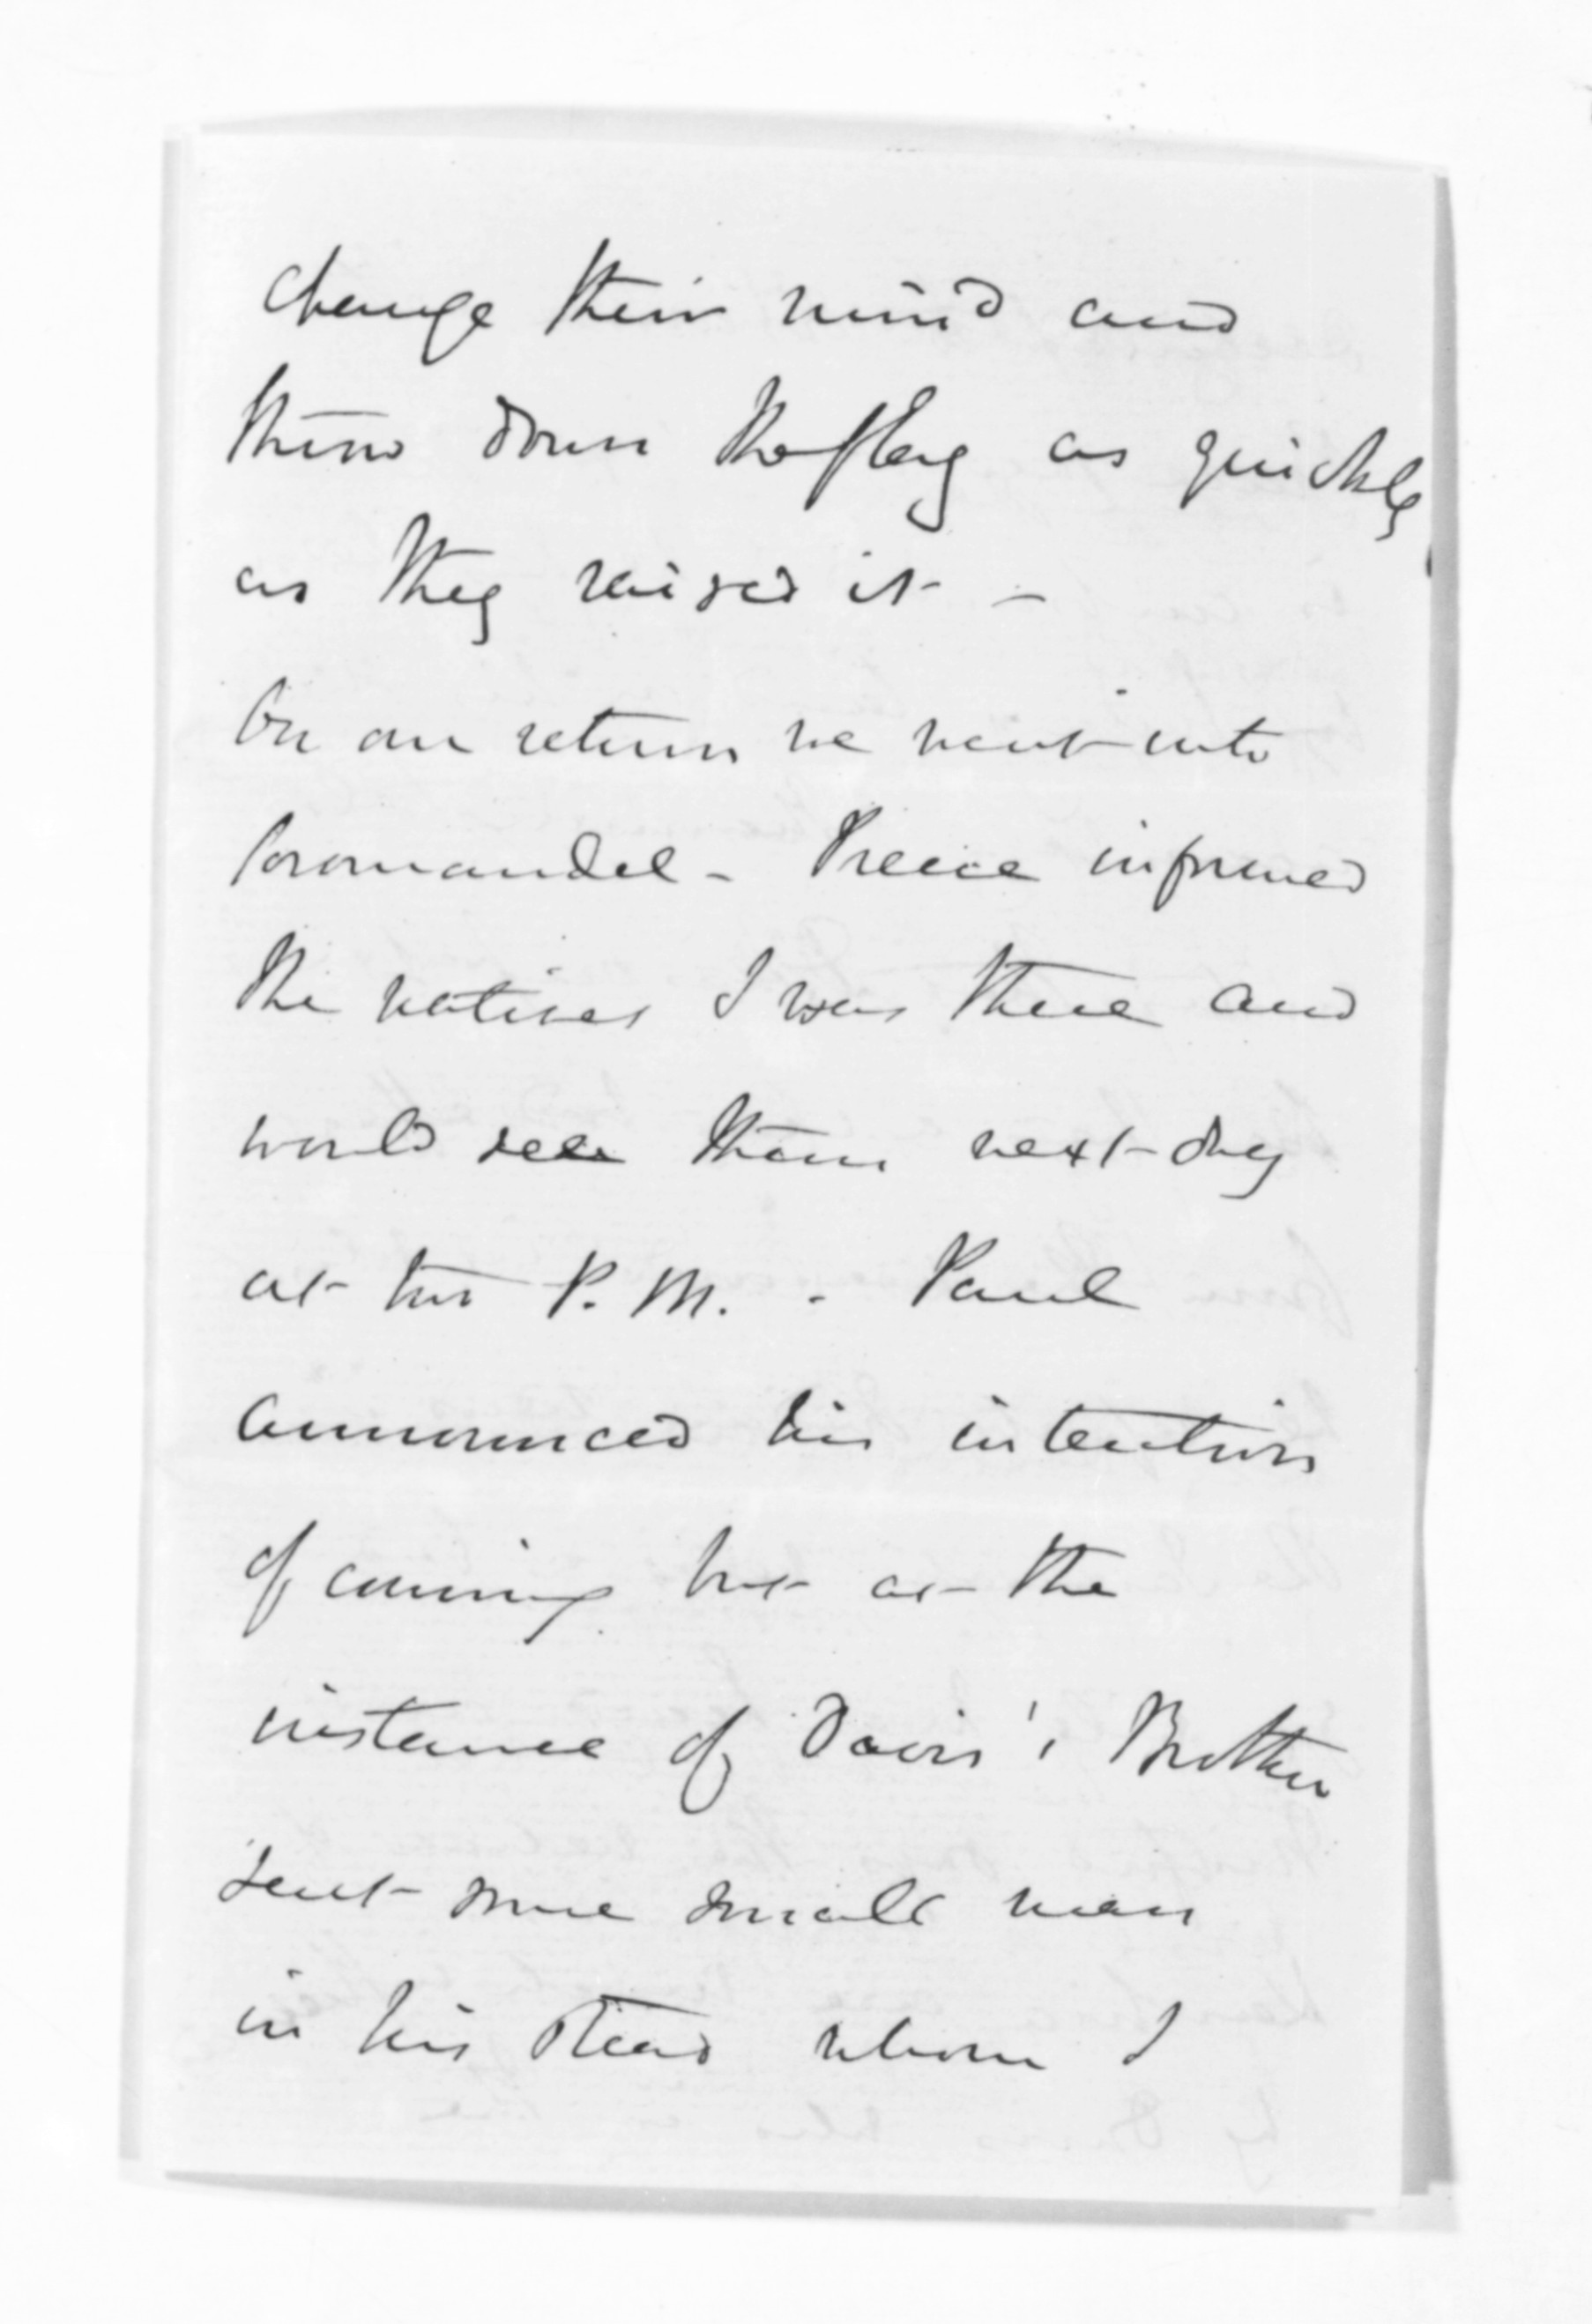 change their mind and
throw down the flag as quickly
as they raised it -
On our return we went into
Coromandel - Preece informed
the natives I was there and
would see them next day
at two P. M. - Paul
announced his intention
of coming but at the
instance of Davis's Brother
sent some small man
in his stead whom I